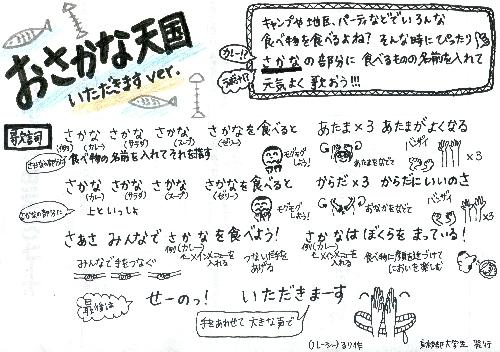 おさかな天国
いただきます ver.
キャンプや地区、パーティなどでいろんな
食べ物を食べるよね? そんな時にぴったり
さかなの部分に食べるものの名前を入れて
元気よく歌おう!!!
カレー!?
歌詞
さかな さかな さかな さかなを食べると あたま×3 あたまがよくなる
(例)(カレー) (サラダ) (スープ) (ゼリー) モグモグしよう! あたまをなでて バンザイ ×3
さかなの部分に
食べ物の名前を入れてそれを指す
さかな さかな さかな さかなを食べると からだ×3 からだにいいのさ
(例)(カレー) (サラダ) (スープ) (ゼリー) モグモグしよう! おなかをなでて バンザイ ×3
さかなの部分に
上といっしょ
さあさ みんなで さかなを食べよう! さかなはぼくらを まっている!
みんなで手をつなぐ
例(カレー)
←メインメニューを入れる
つないだ手をあげる
例(カレー)
←メインメニューを入れる
食べ物に顔を近づけてにおいを楽しむ
最後は
せーのっ! いただきまーす
手をあわせて 大きな声で